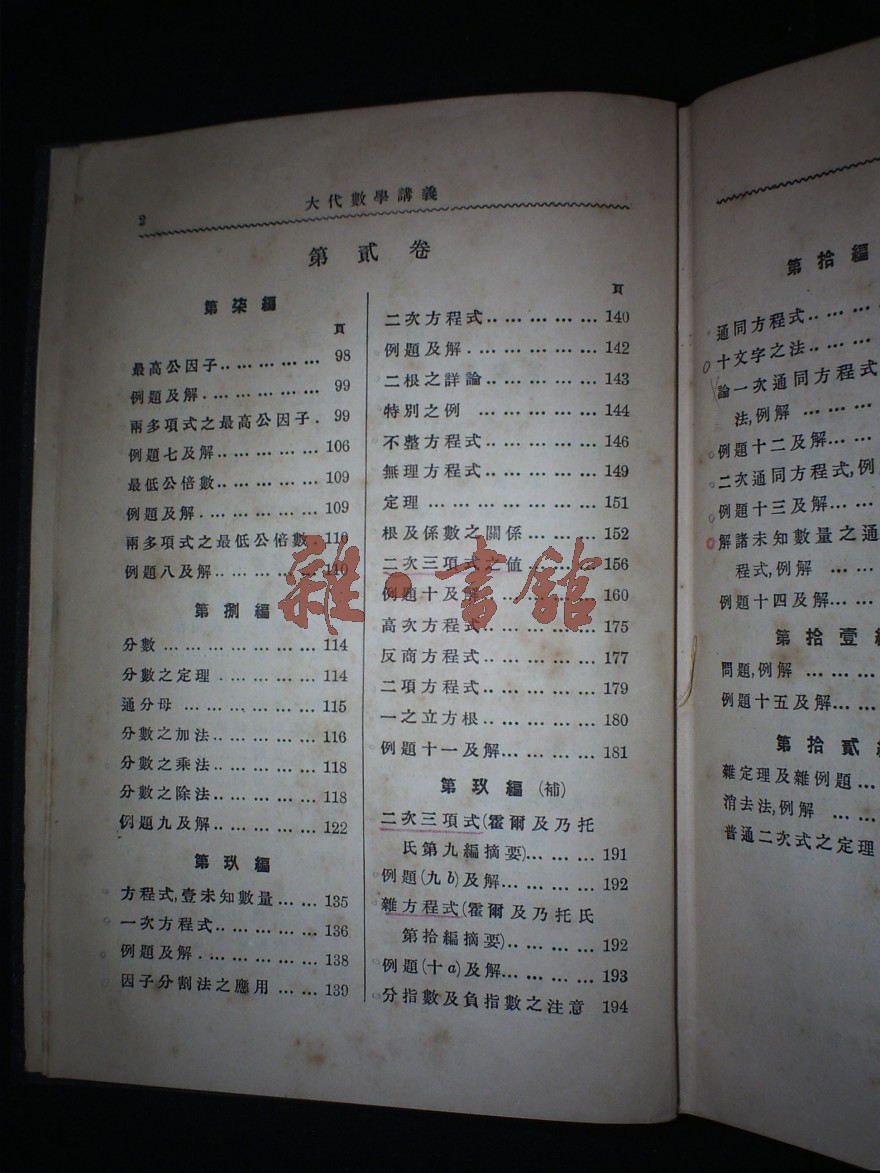 2
大代數學講義
第貳卷
第柒編
頁
最高公因子.. ... ... ... ... 98
例題及解. ... ... ... ... 99
兩多項式之最高公因子. 99
例題七及解.. ... ... ... ... 106
最低公倍數.. ... ... ... ... 109
例題及解. ... ... ... ... 109
兩多項式之最低公倍數. 110
例題八及解.. ... ... ... ... 110
第捌編
分數 ... ... ... ... ... ... 114
分數之定理 . ... ... ... ... 114
通分母 ... ... ... ... ... 115
分數之加法.. ... ... ... ... 116
分數之乘法.. ... ... ... ... 118
分數之除法.. ... ... ... ... 118
例題九及解.. ... ... ... ... 122
第玖編
方程式,壹未知數量 ... ... 135
一次方程式.. ... ... ... ... 136
例題及解. ... ... ... ... 138
因子分割法之應用 ... ... 139
頁
二次方程式.. ... ... ... ... 140
例題及解. ... ... ... ... 142
二根之詳論.. ... ... ... ... 143
特別之例 ... ... ... ... 144
不整方程式.. ... ... ... ... 146
無理方程式.. ... ... ... ... 149
定理 ... ... ... ... ... ... 151
根及係數之關係 ... ... ... 152
二次三項式之値 ... ... ... 156
例題十及解... ... ... ... 160
高次方程式.. ... ... ... ... 175
反商方程式.. ... ... ... ... 177
二項方程式.. ... ... ... ... 179
一之立方根.. ... ... ... ... 180
例題十一及解... ... ... ... 181
第玖編(補)
二次三項式(霍爾及乃托
氏第九編摘要)... ... ... 191
例題(九b)及解... ... ... 192
雜方程式(霍爾及乃托氏
第拾編摘要).. ... ... ... 192
例題(十a)及解... ... ... 193
分指數及負指數之注意 194
雜·書館
第拾編
通同方程式.. ... ...
十文字之法.. ... ...
論一次通同方程式
法,例解 ... ... ...
例題十二及解... ...
二次通同方程式,例
例題十三及解... ...
解諸未知數量之通
程式,例解 ... ...
例題十四及解... ...
第拾壹
問題,例解 ... ... ...
例題十五及解... ...
第拾貳
雜定理及雜例題 ... ...
消去法,例解 ... ...
普通二次式之定理